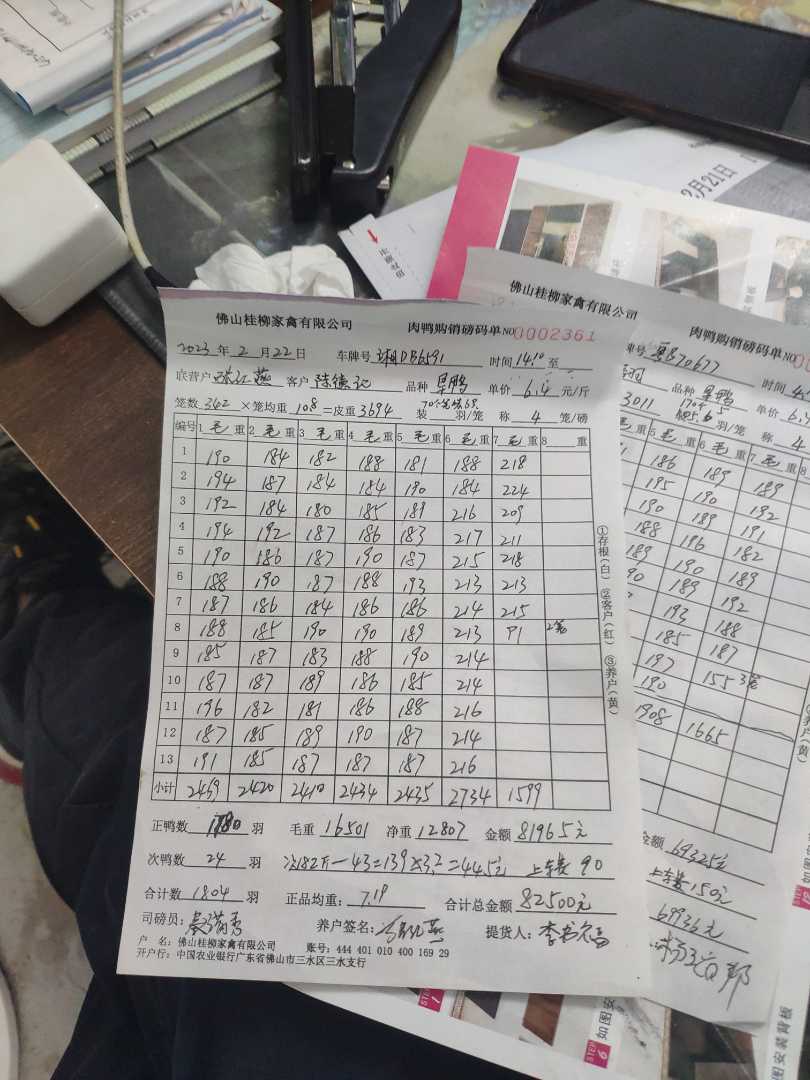 2月21日
佛山桂柳家禽有限公司 肉鸭购销磅码单 NO 0002361
2023年2月22日 车牌号 湘DB6591 时间 14.10 至
联营户 客户 陈德记 品种 单价 6.4 元/斤
笼数 342 ×笼均重 10.8 =皮重 3694 装 羽/笼 称 4 笼/磅
编号 1 毛重 2 毛重 3 毛重 4 毛重 5 毛重 6 毛重 7 毛重 8 重
1 190 184 182 188 181 188 218
2 194 187 184 184 190 184 224
3 192 184 180 185 189 216 209
4 194 192 187 186 183 217 211
5 190 186 187 190 187 215 218
6 188 190 187 188 193 213 213
7 187 186 184 186 186 214 215
8 188 185 190 190 189 213 91 2笼
9 185 187 183 188 190 214
10 187 187 189 186 185 214
11 196 182 181 186 188 216
12 187 185 189 190 187 214
13 191 185 187 187 187 216
小计 2469 2420 2410 2434 2435 2734 1599
正鸭数 1780 羽 毛重 16501 净重 12807 金额 81965元
次鸭数 24 羽 次182斤-43=139×3.2=445元 上车费 90
合计数 1804 羽 正品均重: 7.19 合计总金额 82500元
司磅员: 养户签名: 提货人:
户 名: 佛山桂柳家禽有限公司 账号: 444 401 010 400 169 29
开户行: 中国农业银行广东省佛山市三水区三水支行
①存根(白) ②客户(红) ③养户(黄)
佛山桂柳家禽有限公司
肉鸭购销磅码单 NO 00
牌号 粤B70677 时间 4.
品种 单价 6.4
3011 羽/笼 称 4
5 毛重 6 毛重 7 毛重 8
186 189 189
195 190 192
190 189 191
188 196 182
189 190 189
90 189 192
193 188
185 187
197 155 3笼
190
1908 1665
金额 69325元
上车费 150元
69936元
STEP 6 如图安装
STEP 1
图安装背板